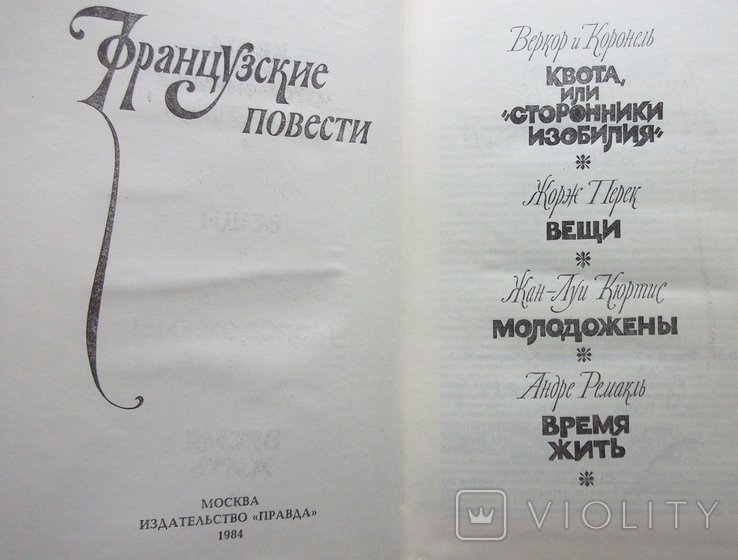 Французские
повести
МОСКВА
ИЗДАТЕЛЬСТВО «ПРАВДА»
1984
Веркор и Коронель
КВОТА,
ИЛИ
"СТОРОННИКИ
ИЗОБИЛИЯ"
Жорж Перек
ВЕЩИ
Жан-Луи Кюртис
МОЛОДОЖЕНЫ
Андре Ремакль
ВРЕМЯ
ЖИТЬ
VIOLITY